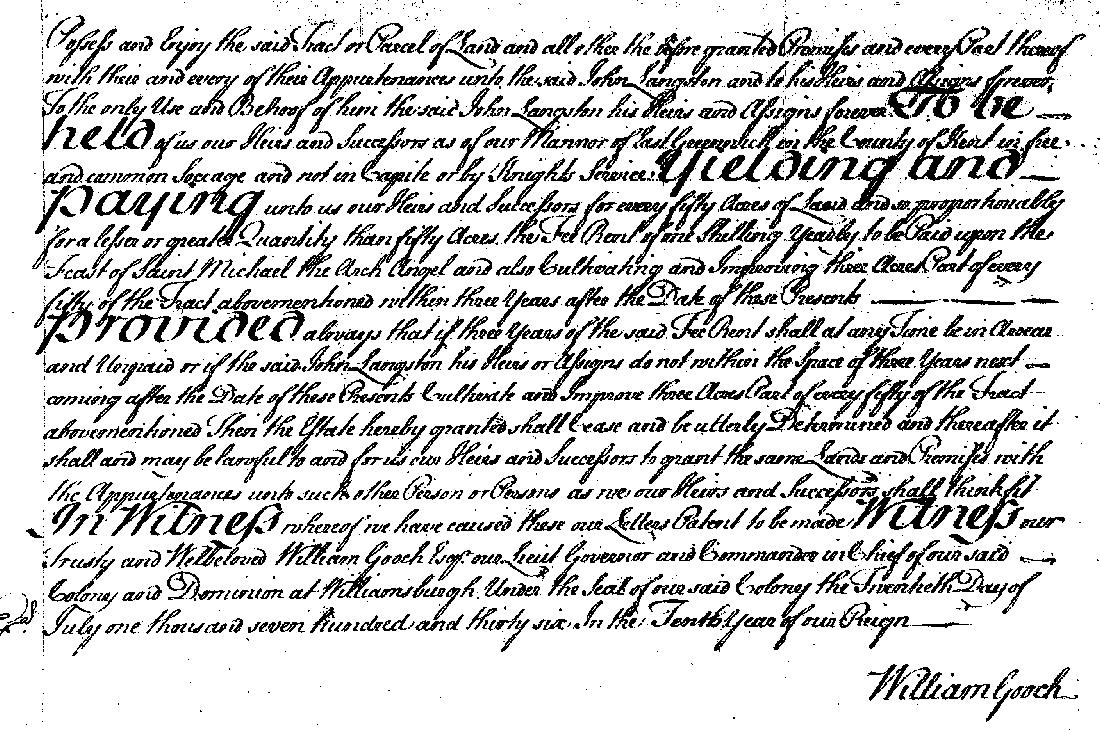 Possess and Enjoy the said Tract or Parcel of Land and all other the before granted Premises and every Part thereof
with their and every of their Appurtenances unto the said John Langston and to his Heirs and Assigns forever,
To the only Use and Behoof of him the said John Langston his Heirs and Assigns forever To be
held of us our Heirs and Successors as of our Mannor of East Greenwich in the County of Kent in free
and common Soccage and not in Capite or by Knights Service. Yielding and
Paying unto us our Heirs and Successors for every fifty Acres of Land and so proportionably
for a lesser or greater Quantity than fifty Acres the Fee Rent of one Shilling Yearly to be Paid upon the
Feast of Saint Michael the Arch Angel and also Cultivating and Improving three Acres Part of every
fifty of the Tract abovementioned within three Years after the Date of these Presents
Provided always that if three Years of the said Fee Rent shall at any Time be in Arrear
and Unpaid or if the said John Langston his Heirs or Assigns do not within the Space of three Years next
coming after the Date of these Presents Cultivate and Improve three Acres Part of every fifty of the Tract
abovementioned Then the Estate hereby granted shall Cease and be utterly Determined and thereafter it
shall and may be lawful to and for us our Heirs and Successors to grant the same Lands and Premises with
the Appurtenances unto such other Person or Persons as we our Heirs and Successors shall think fit
In Witness whereof we have caused these our Letters Patent to be made Witness our
Trusty and Welbeloved William Gooch Esqr. our Lieut Governor and Commander in Chief of our said
Colony and Dominion at Williamsburgh Under the Seal of our said Colony the Twentieth Day of
July one thousand seven hundred and thirty six In the Tenth Year of our Reign
William Gooch